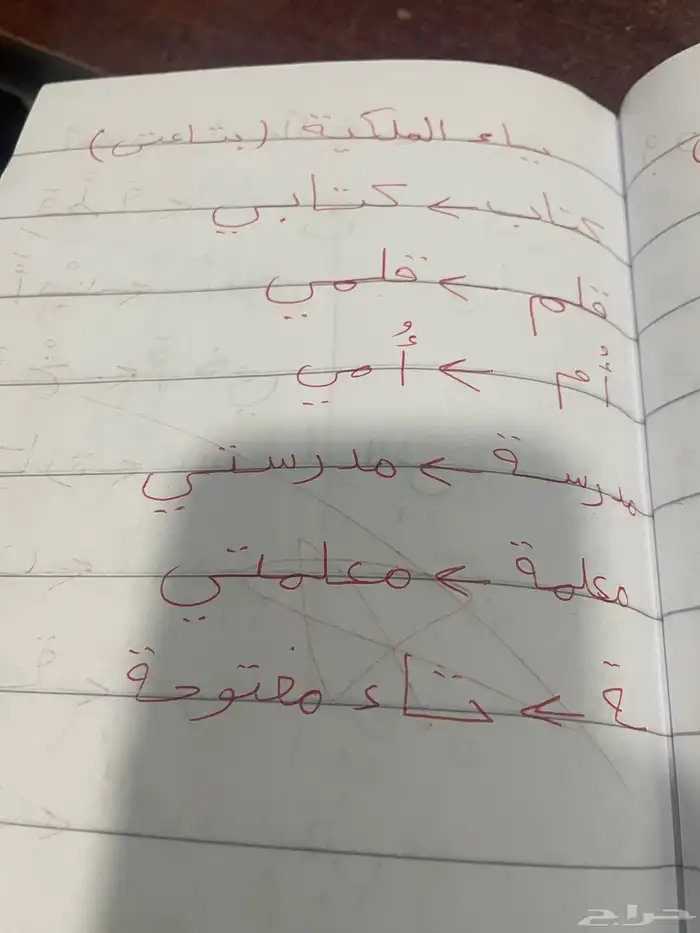 ياء الملكية (بتاعتي)
كتاب ← كتابي
قلم ← قلمي
أُم ← أُمي
مدرسة ← مدرستي
معلمة ← معلمتي
ة ← تاء مفتوحة
حراج